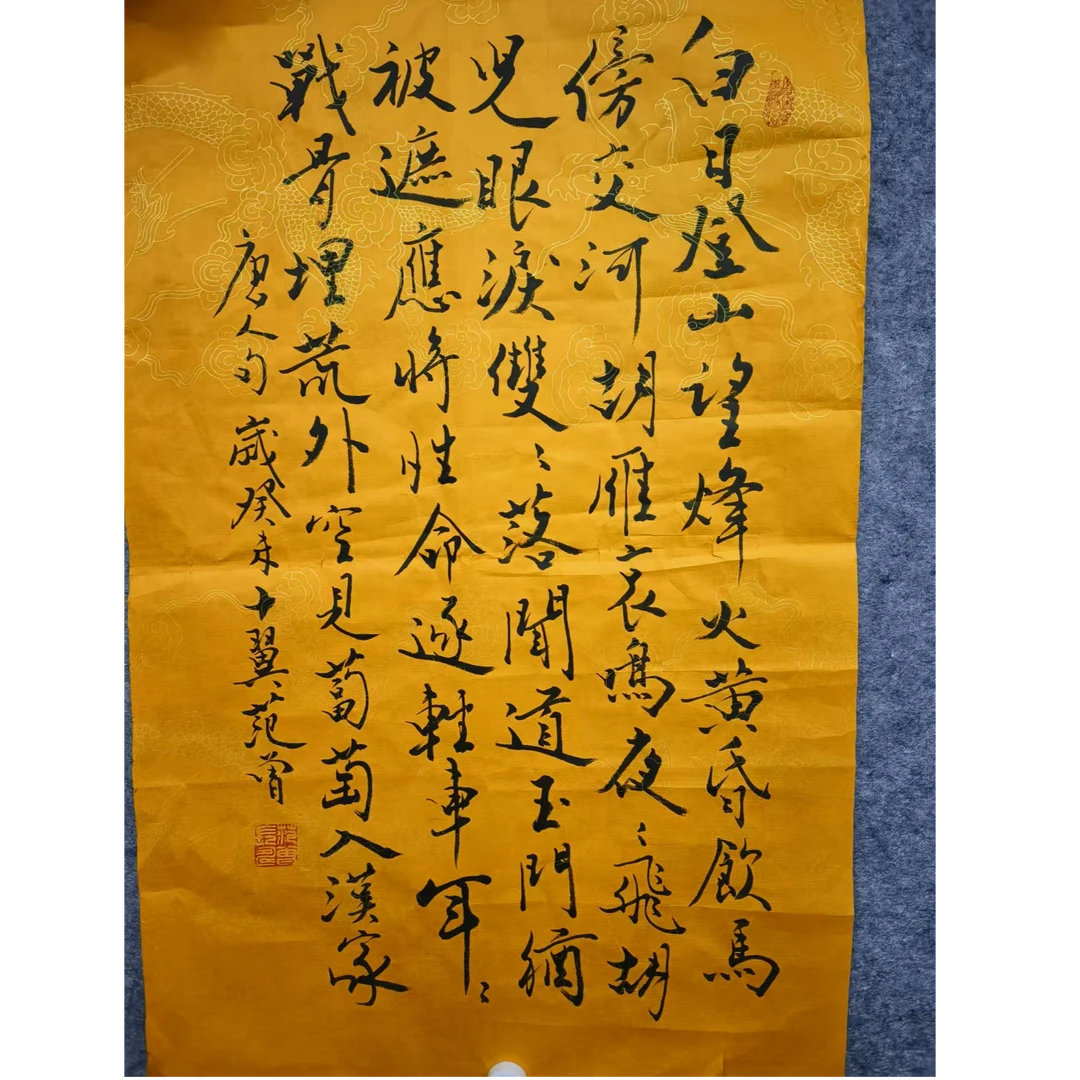 白日登山望烽火黄昏飲馬
傍交河胡雁哀鳴夜〻飛胡
児眼淚雙〻落聞道玉門猶
被遮應將性命逐輕車年〻
戰骨埋荒外空見葡萄入漢家
唐人句歲癸未十翼范曾